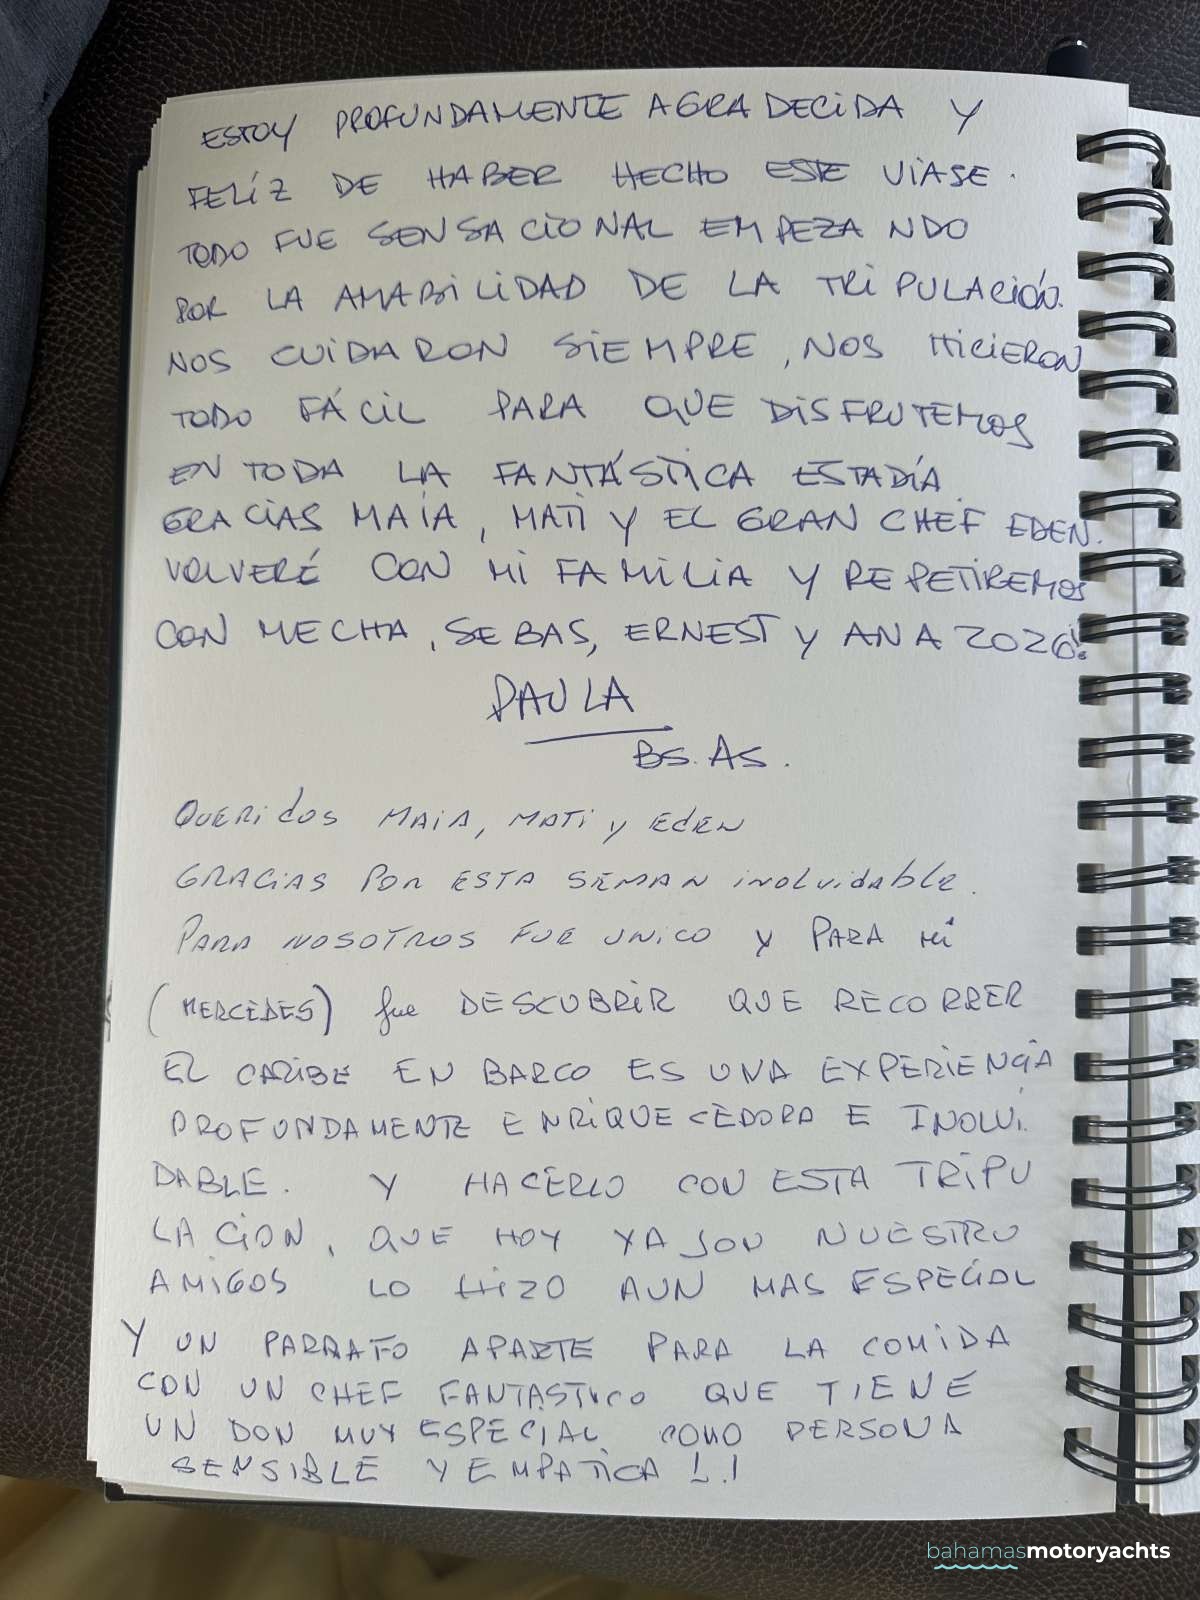 ESTOY PROFUNDAMENTE AGRADECIDA Y
FELÍZ DE HABER HECHO ESTE VIAJE.
TODO FUE SENSACIONAL EMPEZANDO
POR LA AMABILIDAD DE LA TRIPULACIÓN.
NOS CUIDARON SIEMPRE, NOS HICIERON
TODO FÁCIL PARA QUE DISFRUTEMOS
EN TODA LA FANTÁSTICA ESTADÍA.
GRACIAS MAÍA, MATI Y EL GRAN CHEF EDEN.
VOLVERÉ CON MI FAMILIA Y REPETIREMOS
CON MECHA, SEBAS, ERNEST Y ANA 2026!
PAULA
BS. AS.
QUERIdOS MAIA, MATI Y EdEN
GRACIAS POR ESTA SEMAN INOLVIdAblE.
PARA NOSOTROS FUE UNICO Y PARA MÍ
(MERCEDES) fue DESCUBRIR QUE RECORRER
EL CARIBE EN BARCO ES UNA EXPERIENCIA
PROFUNDAMENTE ENRIQUECEDORA E INOLVI
DABLE. Y HACERLO CON ESTA TRIPU
LACION, QUE HOY YA SON NUESTRO
AMIGOS LO HIZO AUN MAS ESPECIAL
Y UN PARRAFO APARTE PARA LA COMIDA
CON UN CHEF FANTASTICO QUE TIENE
UN DON MUY ESPECIAL COMO PERSONA
SENSIBLE Y EMPATICA !.!
bahamasmotoryachts